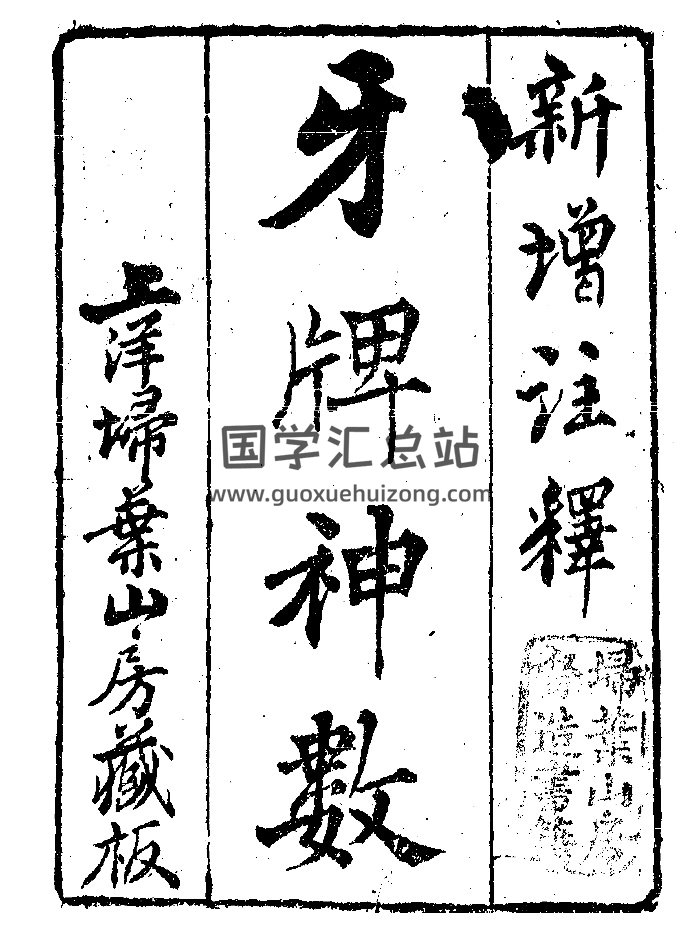 新增註釋
牙牌神數
上洋埽葉山房藏板
埽葉山房
督造書籍
国学汇总站
www.guoxuehuizong.com